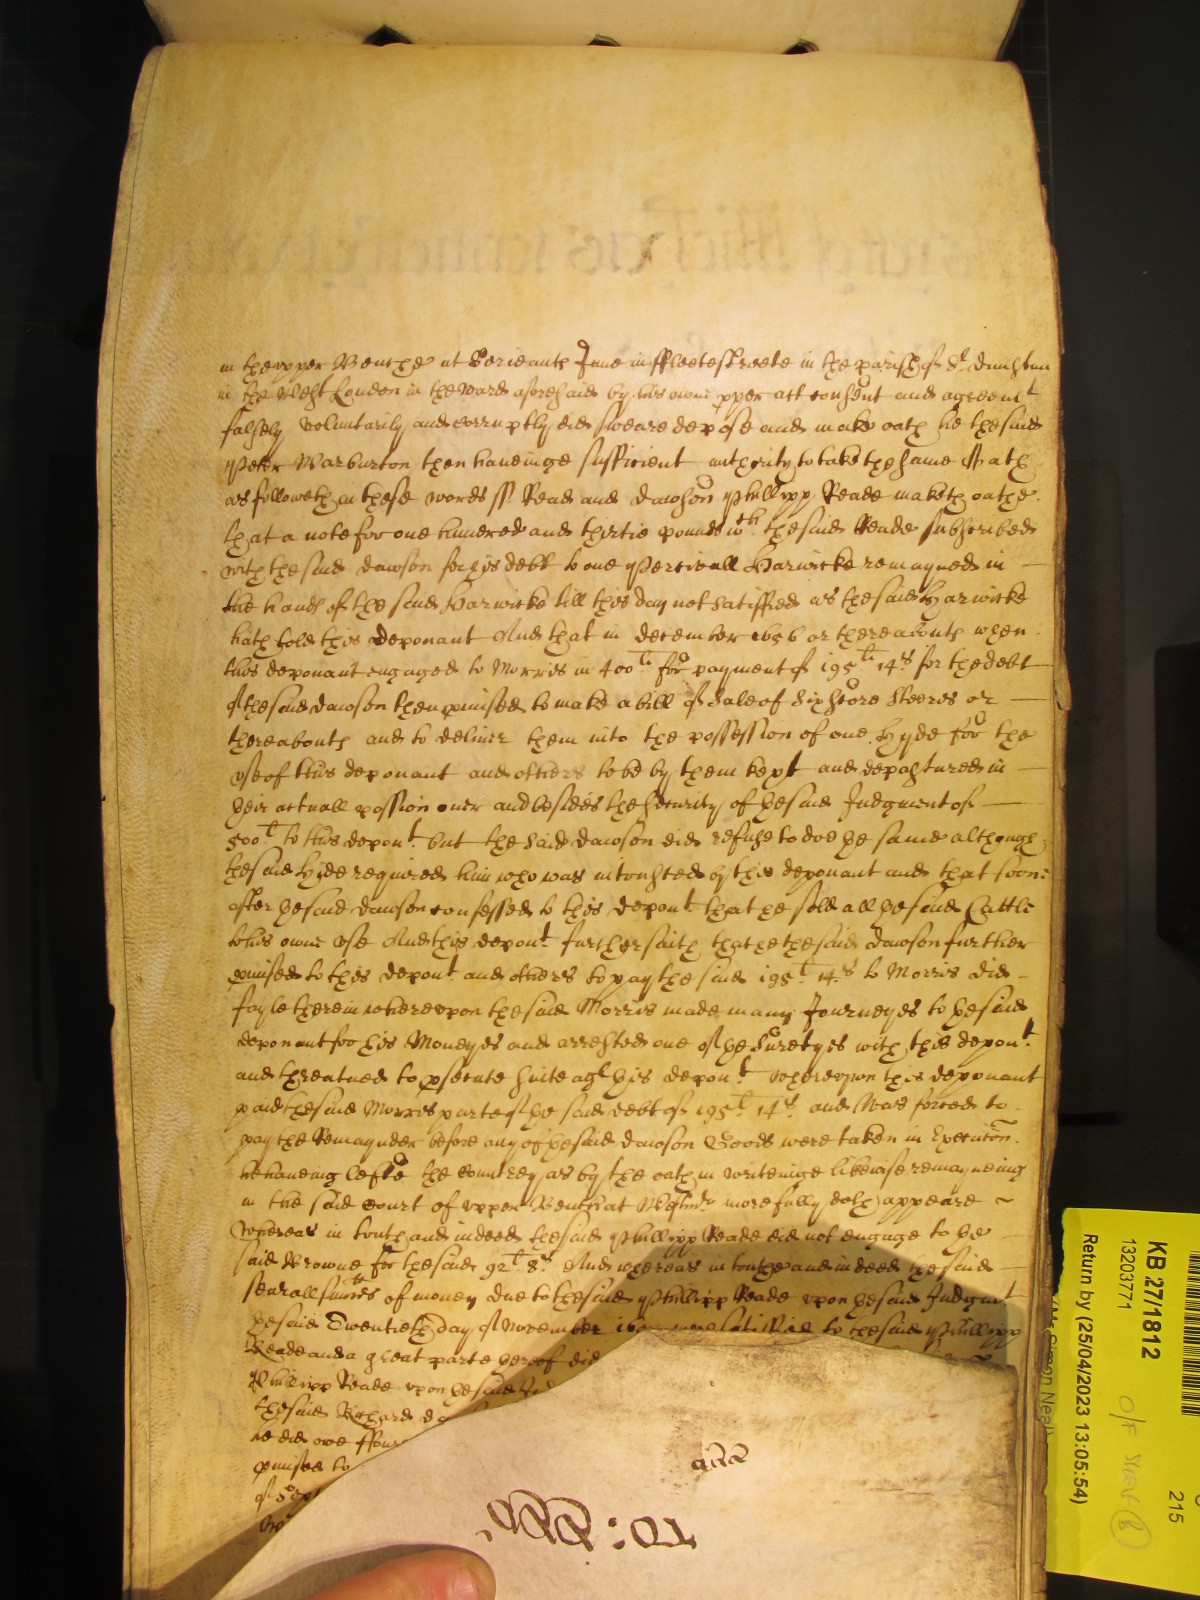 in the upper Benche at Serieants Inne in ffleetestreete in the parish of St. Dunstan
in the West London in the ward aforesaid by his owne pper act consent and agreemt
falsely voluntarily and corruptly did sweare depose and make oath he the said
Peter Warburton then haveinge sufficient authority to take the same Oath
as followeth in these words ss Read and Dawson Phillipp Reade maketh oathe
that a note for one hundred and thirtie pounds wch the said Reade subscribed
with the said Dawson for his debt to one Percivall Harwicke remayned in
the hands of the said Harwicke till this day not satisfied as the said Harwicke
hath told this deponant And that in December 1656 or thereabouts when
this deponant engaged to Morris in 400li for payment of 195li 14s for the debt
of the said Dawson then pmised to make a bill of Sale of six score Steeres or
thereabouts and to deliver them into the possession of one Hyde for the
use of this deponant and others to be by them kept and depastured in
their actuall possion over and besides the security of the said Judgment of
500li to this depont but the said Dawson did refuse to doe the same although
the said Hyde required him who was intrusted by this deponant and that soone
after the said Dawson confessed to this depont that he sold all the said Cattle
to his owne use And this depont further saith that he the said Dawson further
pmised to this depont and others to pay the said 195li 14s to Morris did
fayle therein whereupon the said Morris made many Journeyes to the said
deponant for his Moneyes and arrested one of the suretyes with this depont
and threatned to psecute suite agt this depont Whereupon this deponant
paid the said Morris parte of the said debt of 195li 14s and was forced to
pay the Remaynder before any of the said Dawson Goods were taken in Execution
he haveing lefte the countrey as by the oath in writeinge likewise remayneing
in the said Court of upper Bench at Westmr more fully doth appeare
Whereas in truth and indeed the said Phillipp Reade did not engage to the
said Browne for the said 92li 8s And whereas in truthe and indeed the said
severall summes of money due to the said Phillipp Reade upon the said Judgmt
the said Twentieth day of November satisfied to the said Phillipp
Reade and a great parte thereof did
Phillipp Reade upon the said
the said Richard
he did owe ffour
pmised to
of
KB 27/1812
13203771
Return by (25/04/2023 13:05:54)
215